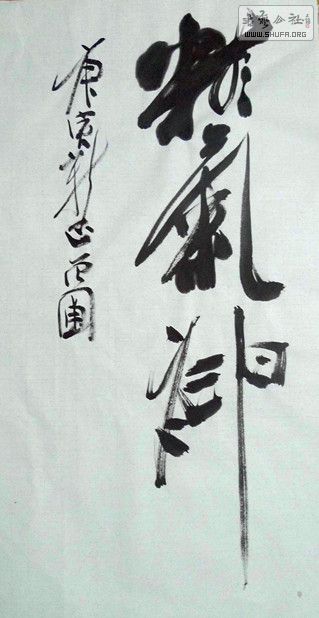 精氣神
庚寅新正
書法公社
WWW.SHUFA.ORG